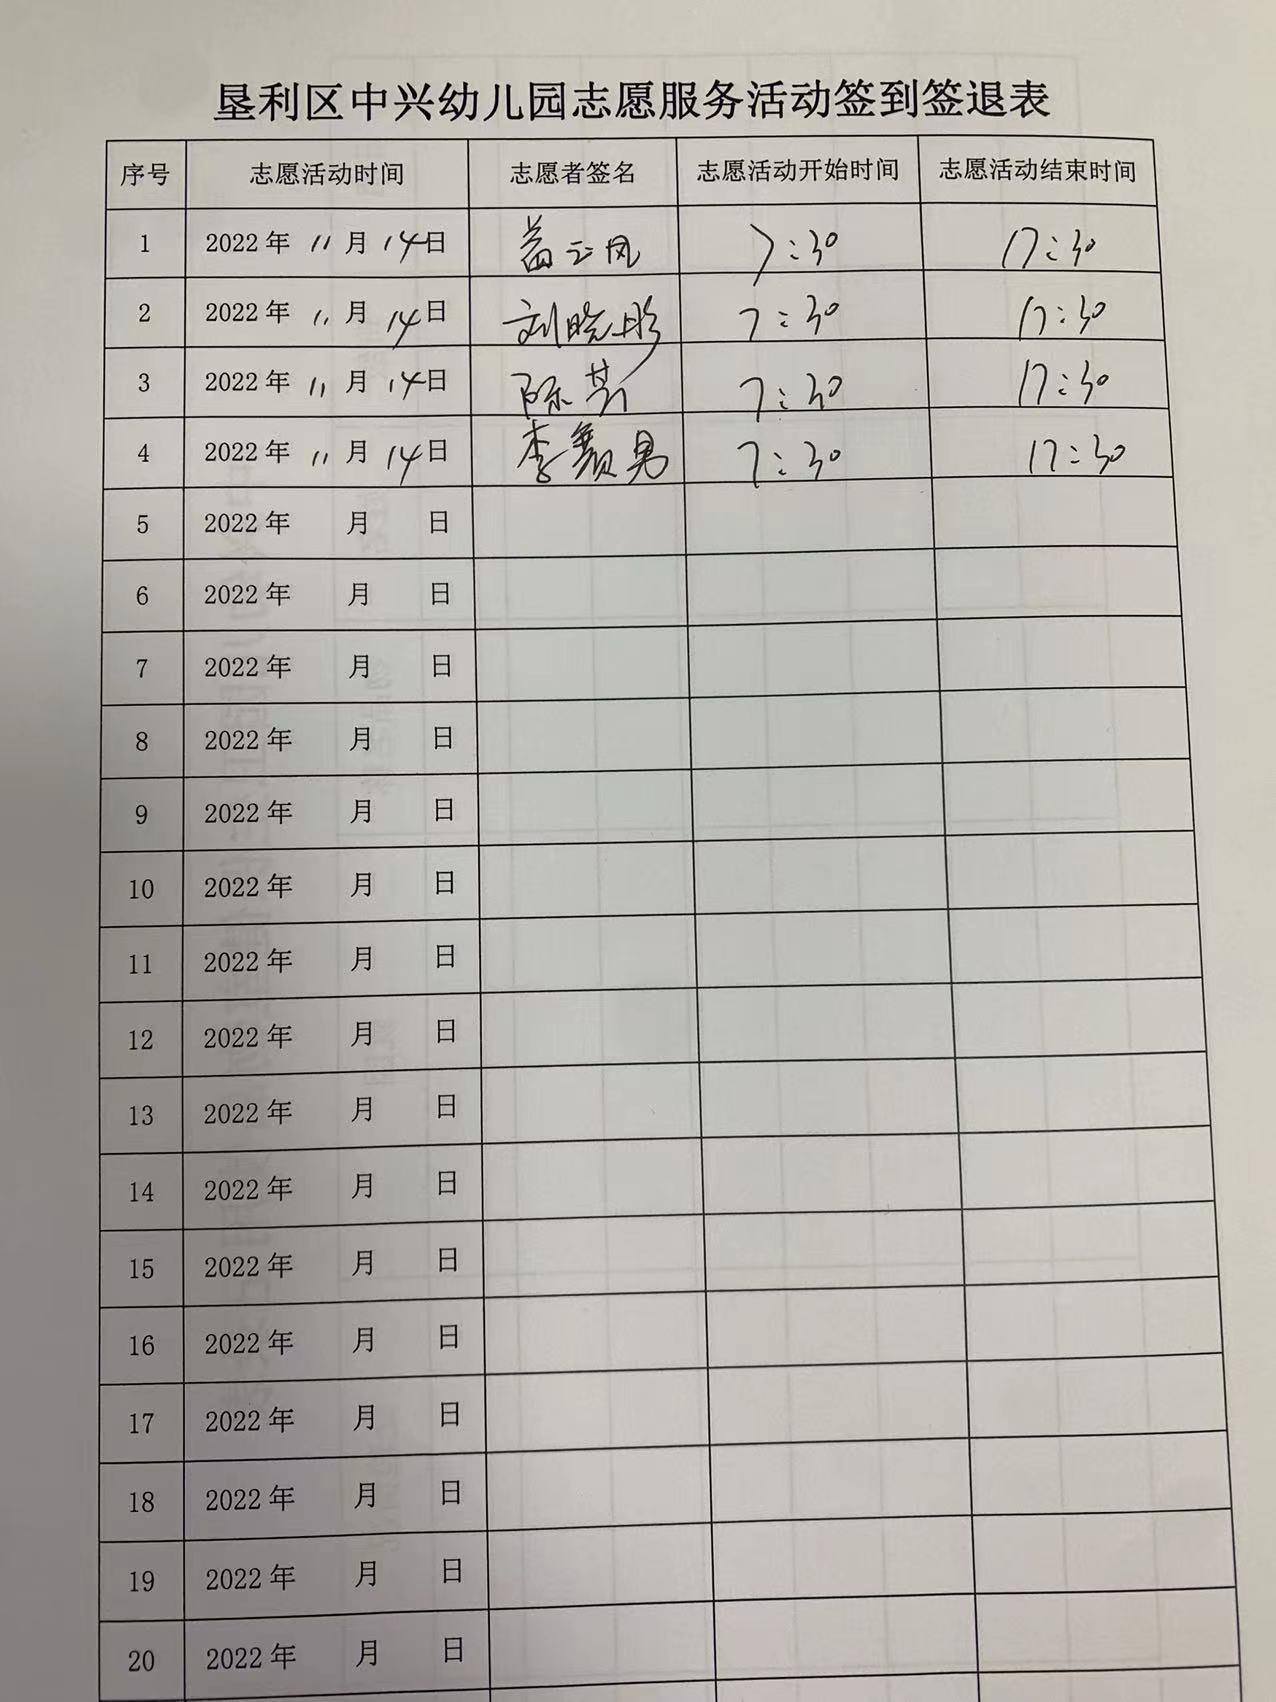 垦利区中兴幼儿园志愿服务活动签到签退表
序号 志愿活动时间 志愿者签名 志愿活动开始时间 志愿活动结束时间
1 2022年 11月 14日 盖云凤 7:30 17:30
2 2022年 11月 14日 刘晓彤 7:30 17:30
3 2022年 11月 14日 陈芳 7:30 17:30
4 2022年 11月 14日 李颜男 7:30 17:30
5 2022年 月 日
6 2022年 月 日
7 2022年 月 日
8 2022年 月 日
9 2022年 月 日
10 2022年 月 日
11 2022年 月 日
12 2022年 月 日
13 2022年 月 日
14 2022年 月 日
15 2022年 月 日
16 2022年 月 日
17 2022年 月 日
18 2022年 月 日
19 2022年 月 日
20 2022年 月 日